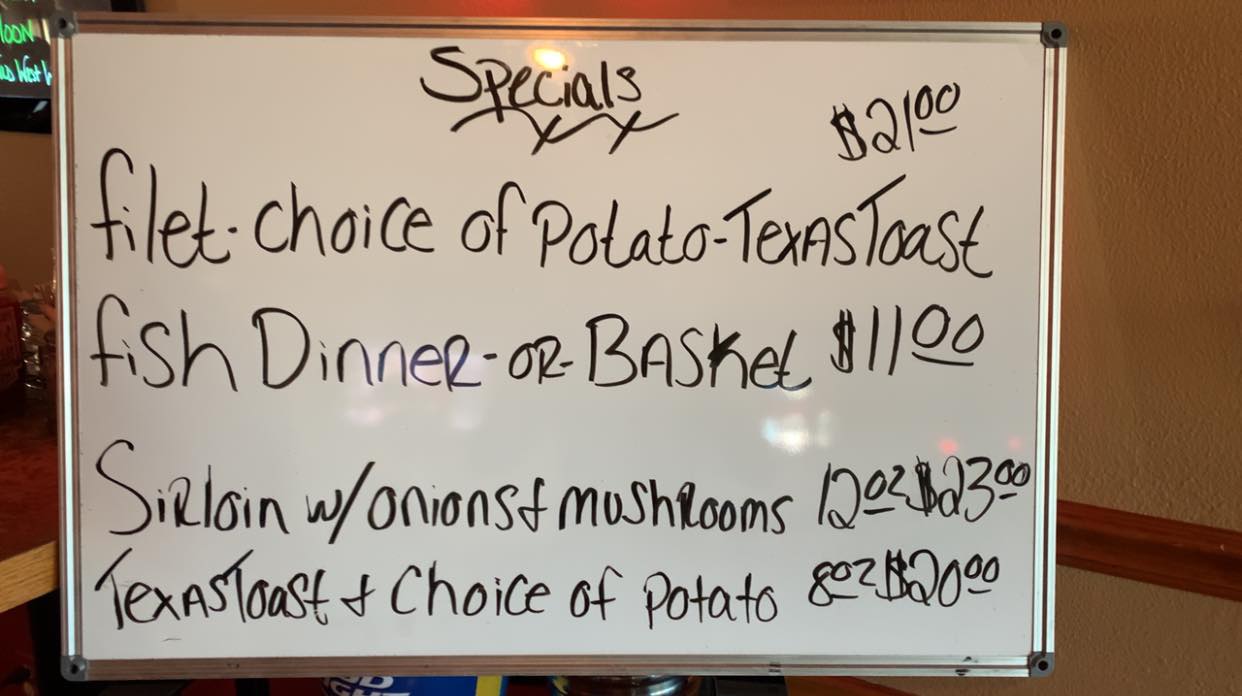 OON
Wild West W
Specials
$2100
filet. choice of Potato-TexAsToast
fish DinneR-oR-BASket $1100
SiRloin w/onions & mushRooms 12oz $2300
TexAsToast & Choice of Potato 8oz $2000